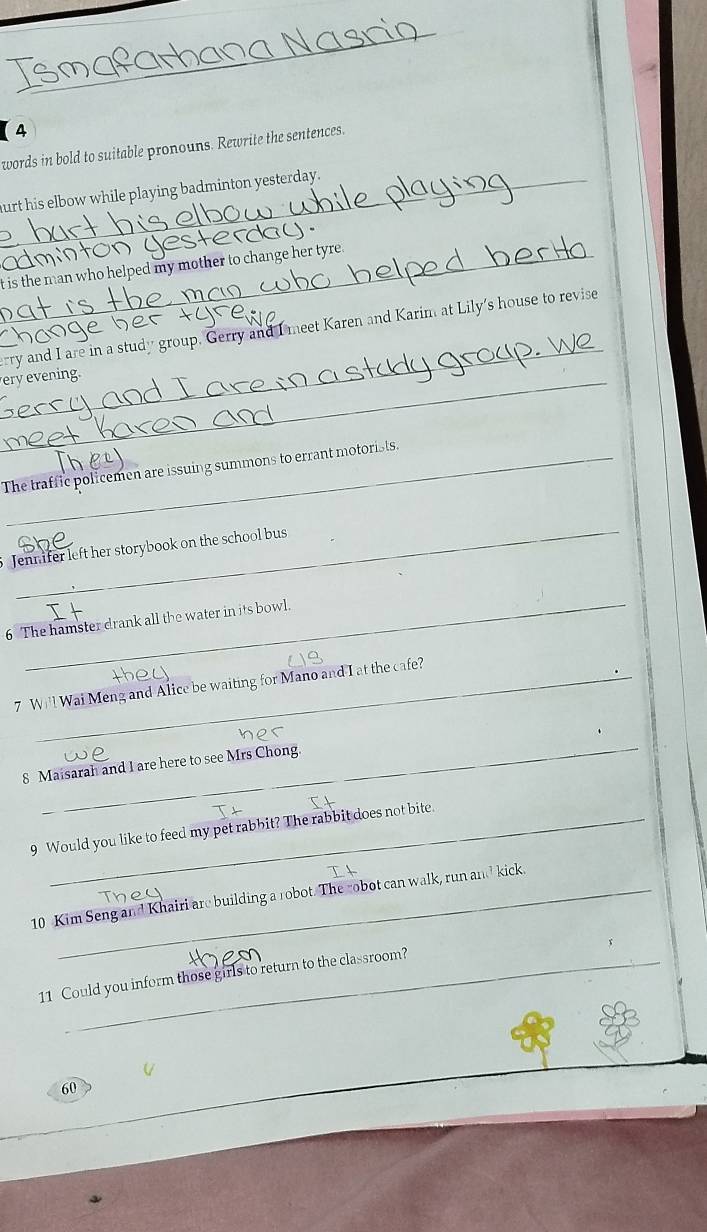 Ismafarhana Nasrin
4
words in bold to suitable pronouns. Rewrite the sentences.
urt his elbow while playing badminton yesterday.
hurt his elbow while playing
adminton yesterday.
t is the man who helped my mother to change her tyre.
hat is the man who helped her to
change her tyre.
We
erry and I are in a study group. Gerry and I meet Karen and Karim at Lily's house to revise
very evening.
Gerry and I are in a study group. We
meet Karen and
They
The traffic policemen are issuing summons to errant motorists.
She
5 Jennifer left her storybook on the school bus
It
6 The hamster drank all the water in its bowl.
they us
7 Will Wai Meng and Alice be waiting for Mano and I at the cafe?
we her
8 Maisarah and I are here to see Mrs Chong.
It It
9 Would you like to feed my pet rabbit? The rabbit does not bite.
They It
10 Kim Seng and Khairi are building a robot. The robot can walk, run and kick.
them
11 Could you inform those girls to return to the classroom?
60